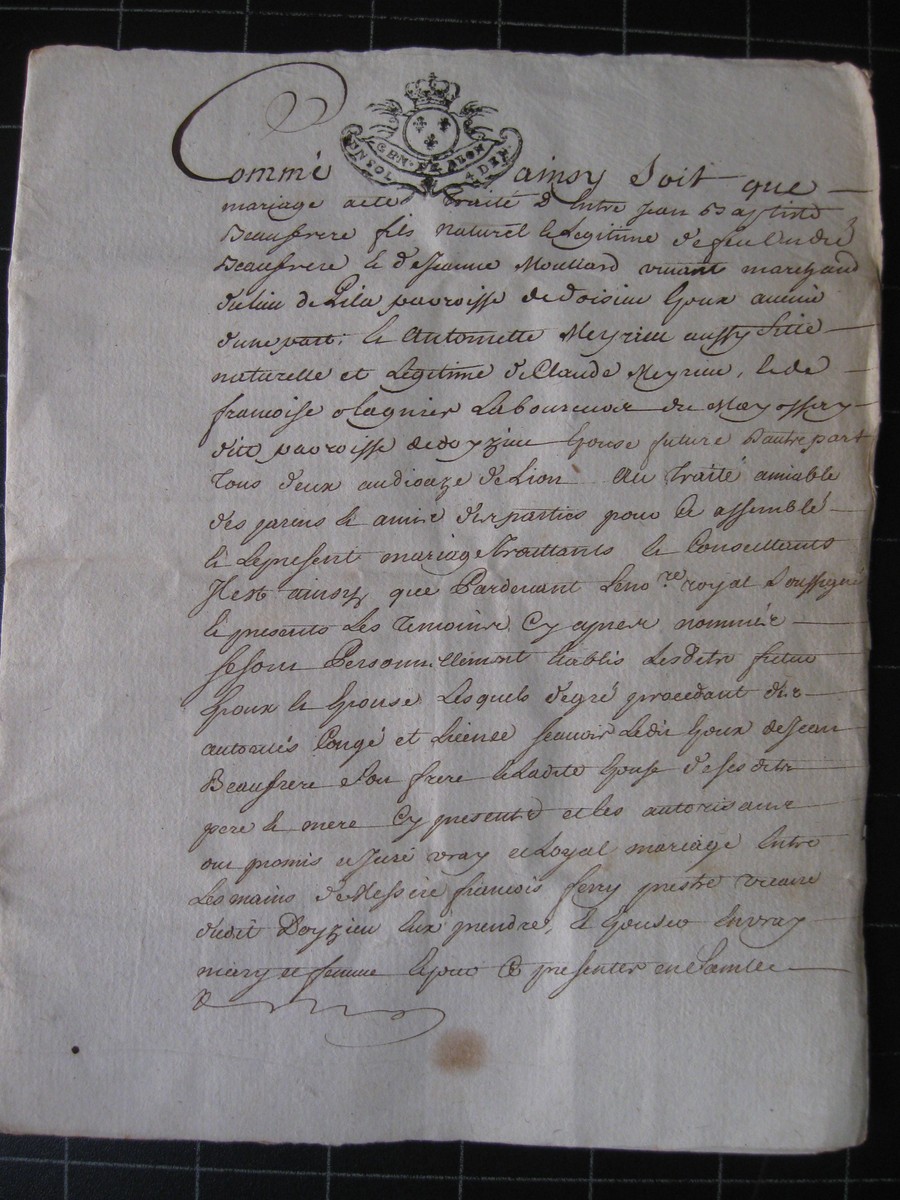 GEN. DE LION
UN SOL 4 DEN.
Comme ainsy soit que
mariage aété traité Entre Jean Baptiste
Beaufrere fils naturel et Legitime de feu André
Beaufrere et de Jeanne Moullard vivant marchand
du lieu de paroisse de Doisieu Epoux avenir
d'une part; et Antoinette Meyrieu aussy fille
naturelle et Legitime de Claude Meyrieu, et de
francoise olagnier Laboureur de
dite paroisse de doyzieu Epouse future d'autre part
Tous deux audioceze de Lion Au Traité amiable
des parens et amis des parties pour ce assemblé
et Lepresent mariage Traittants et Conseillants
Il est ainsy que Pardevant Le no.re royal Soussigné
et presents Les Temoins Cy apres nommés
se sont Personnellement Etablis Lesdits futur
Epoux et Epouse Lesquels de gré procedant des
autorités Congé et Licence scavoir Ledit Epoux de Jean
Beaufrere son frere et Ladite Epouse de ses dits
pere et mere Cy presents et les autorisant
ont promis et Juré vray et Loyal mariage Entre
Les mains de Messire francois ferry prestre vicaire
dudit Doyzieu Eux prendre, et Epouser En vray
mary et femme et pour Ce presenter en Sainte